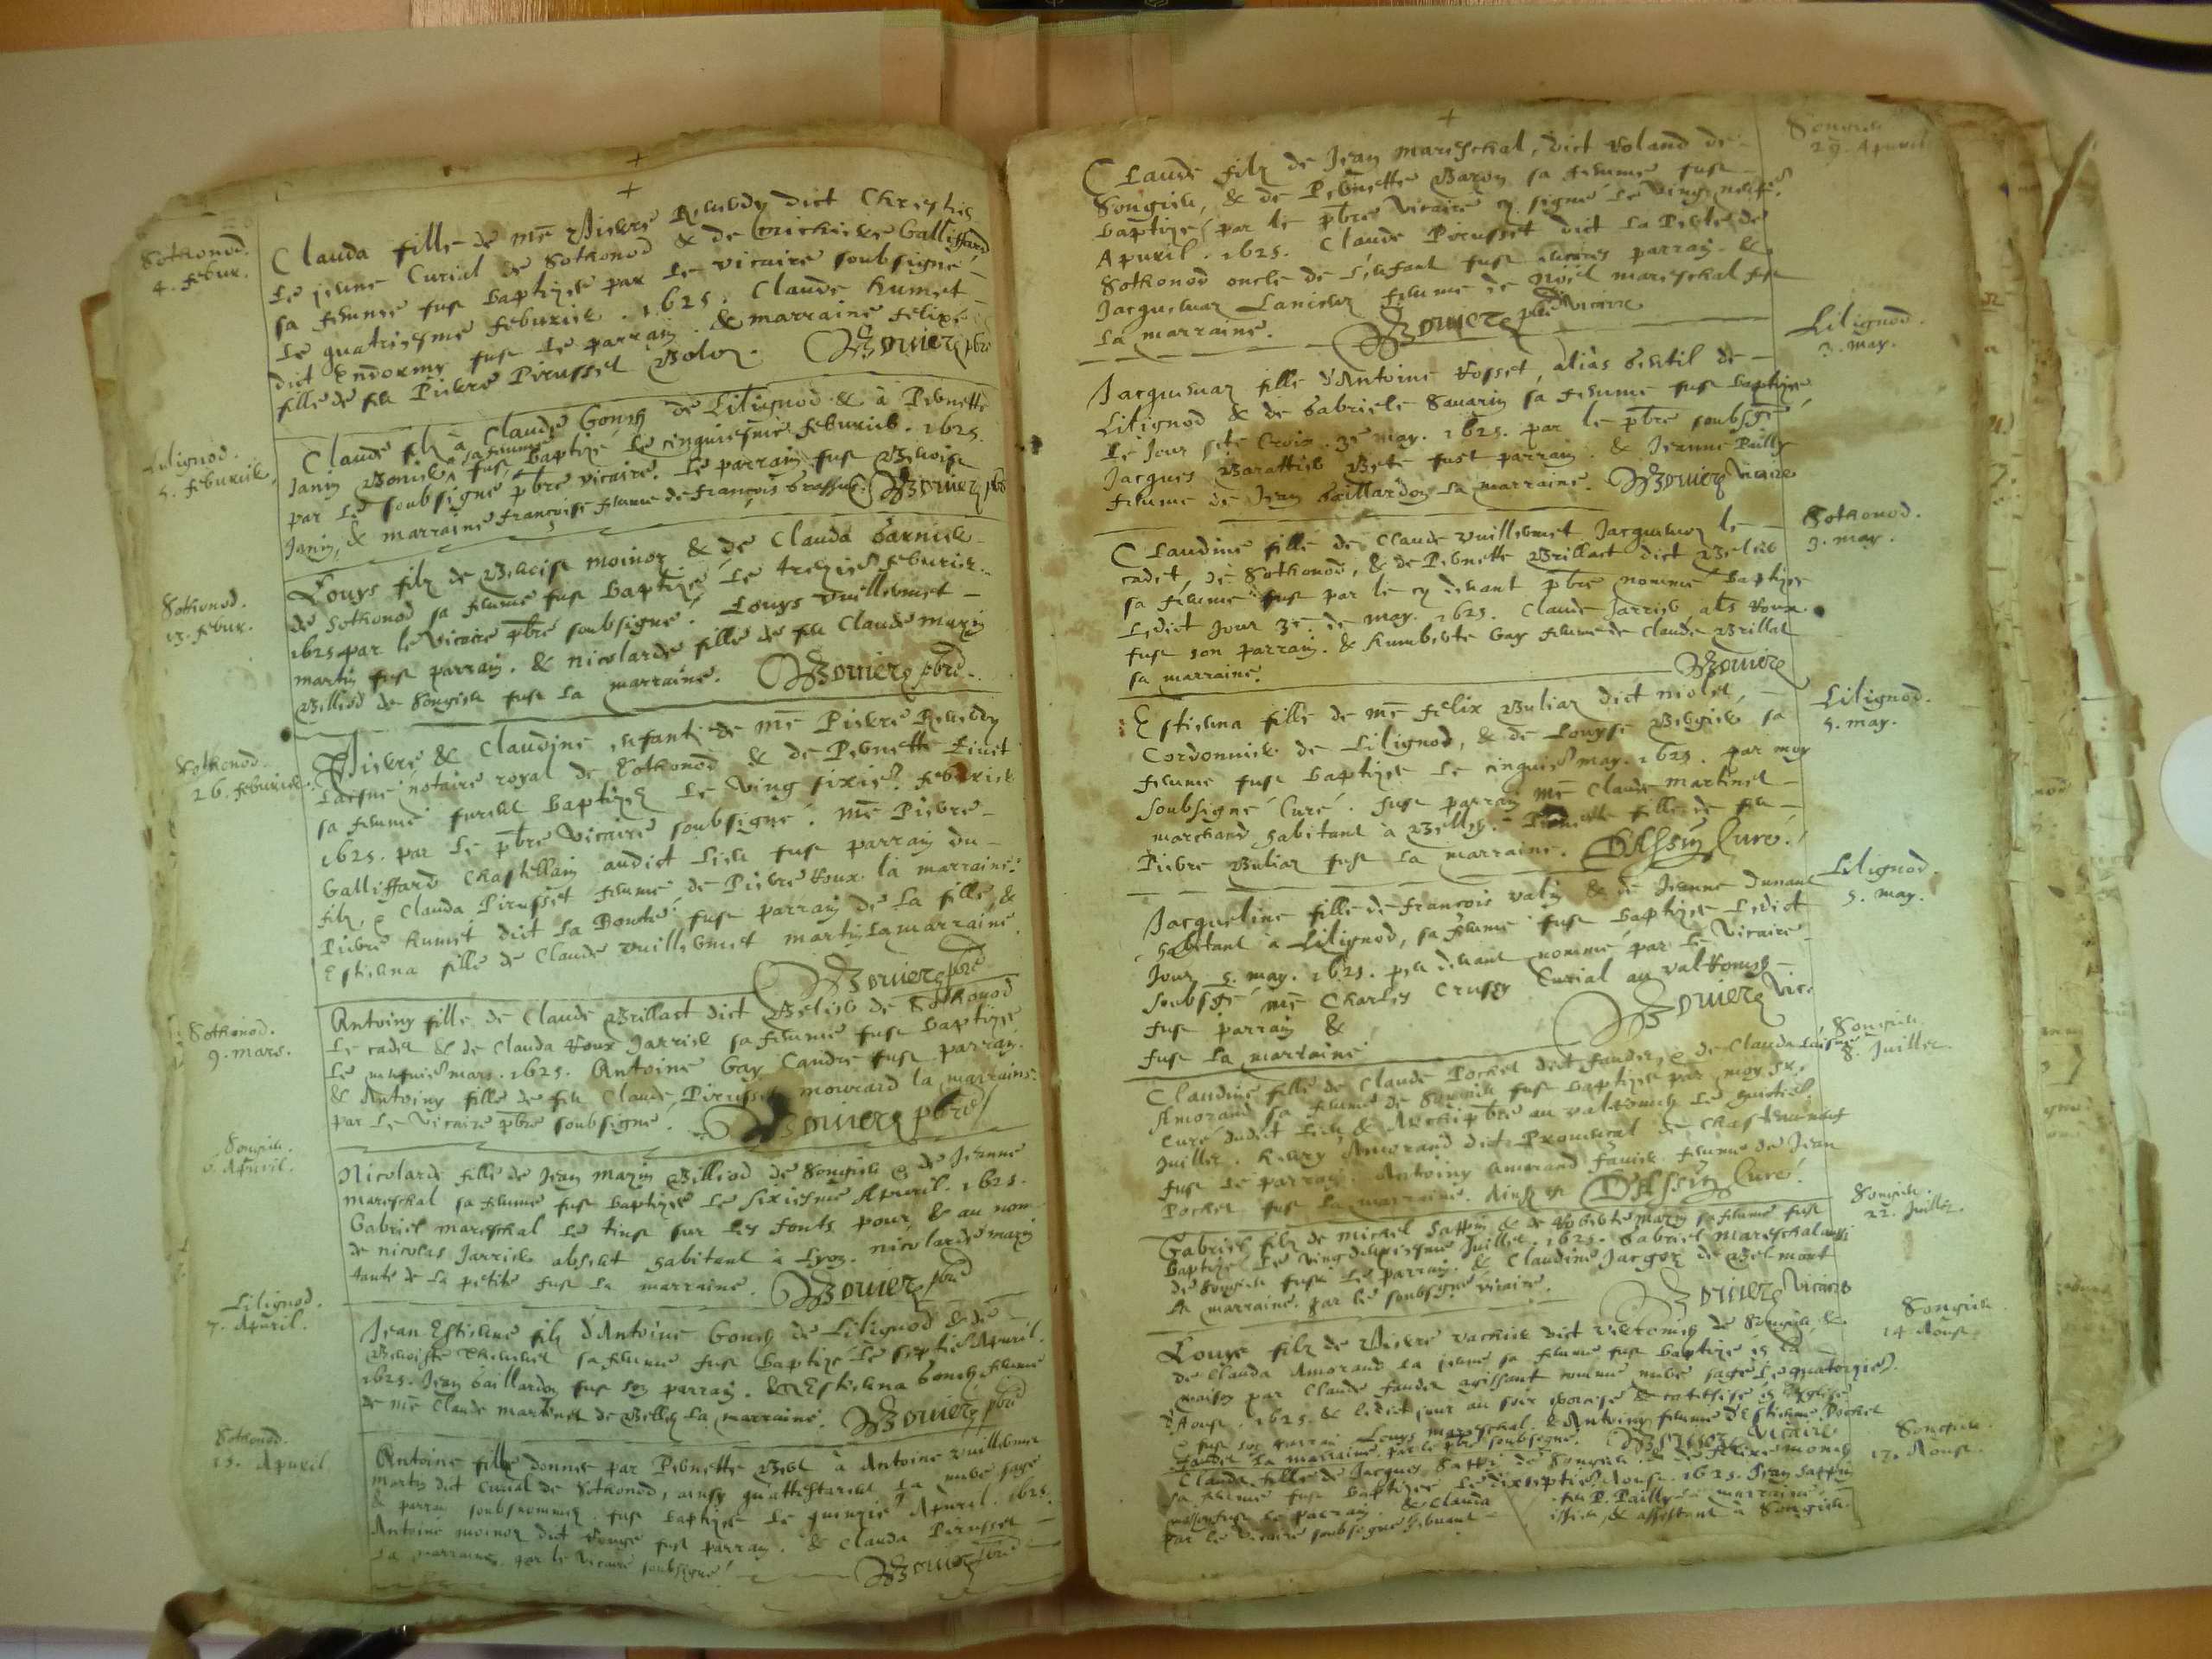 +
Sothonod.
4. febur.
Clauda fille de me Pierre
dict
le jeune Curial de Sothonod & de Galliffard
sa femme fust baptizee par le vicaire soubsigné
le quatriesme feburier. 1625. Claude Humet
dict Endormy fust le parrain. & marraine felixe
fille de feu Pierre Pirusset Bolon. Bouier pbre
Litignod.
5. feburier.
Claude filz à Claude Gonch de Litignod & à Pernette
Janin sa femme fust baptizé le cinquiesme feburier. 1625.
par le soubsigné pbre vicaire. Le parrain fust Benoist
Janin, & marraine françoise femme de françois Bouier pbr
Sothonod.
13. febur.
Louys filz de Benoist moinoz & de Clauda Garnier
de Sothonod sa femme fust baptizé le treziesme feburier.
1625 par le vicaire pbre soubsigné. Louys Vuillermet
martin fust parrain. & nicolarde fille de feu Claude marin
Billiod de Songieu fust la marraine. Bouier pbre.
Sothonod.
26. feburier.
Pierre & Claudine enfants de me Pierre
Laisné notaire royal de Sothonod & de Pernette
sa femme furent baptizez le ving sixie. feburier
1625. par le pbre vicaire soubsigné. me Pierre
Galliffard Chastellain audict lieu fust parrain du
filz, & Clauda Pirusset femme de Pierre Roux la marraine.
Pierre Humet dict la fust parrain de la fille, &
Estiena fille de Claude Vuillermet martin la marraine.
Bouier pbre
Sothonod.
9. mars.
Antoiny fille de Claude Brillact dict de Sothonod
le cadet & de Clauda Roux Jarrier sa femme fust baptizee
le mars. 1625. Antoine Gay Candre fust parrain.
& Antoiny fille de feu Claude Pirusset mourard la marraine.
par le vicaire pbre soubsigné. Bouier pbre
Songieu.
6. Apuril.
Nicolarde fille de Jean marin Billiod de Songieu & de Jeanne
mareschal sa femme fust baptizee le sixiesme Apuril. 1625.
Gabriel mareschal le tinst sur les fonts pour, & au nom
de nicolas Jarrier absent habitant à Lyon. nicolarde marin
tante de la petite fust la marraine. Bouier pbre
Litignod.
7. Apuril.
Jean Estienne filz d'Antoine Gonch de Litignod & de
Benoiste sa femme fust baptizé le septie Apuril.
1625. Jean Gaillardon fust son parrain. & Estiena Gonch femme
de me Claude martinet de Belley la marraine. Bouier pbre
Sothonod.
15. Apuril
Antoine fille donnee par Pernette à Antoine Vuillermet
martin dict Curial de Sothonod, ainsy qu'attestarent la mere sage
& parrain soubsnommez. fust baptizee le quinzie Apuril. 1625.
Antoine moinoz dict fust parrain. & Clauda Pirusset
la marraine, par le vicaire soubsigné. Bouier pbre
+
Songieu
29. Apuril
Claude filz de Jean mareschal, dict Voland de
Songieu, & de Pernette Baron sa femme fust
baptizé par le pbre vicaire cy signé le ving neufe.
Apuril. 1625. Claude Pirusset dict la de
Sothonod oncle de l'enfant fust parrain. &
Jacquemaz femme de Noël mareschal fust
la marraine. Bouier pbre vicaire
Litignod.
3. may.
Jacquemaz fille d'Antoine Rosset, alias Gentil de
Litignod & de Gabriele Sauarin sa femme fust baptizee
le jour ste Croix. 3e may. 1625. par le pbre soubsgé
Jacques Barattier fust parrain. & Jeanne Pailly
femme de Jean Gaillardon la marraine. Bouier vicaire
Sothonod.
3. may.
Claudine fille de Claude Vuillermet Jacquemoz le
cadet, de Sothonod, & de Pernette Brillact dict
sa femme fust par le cy deuant pbre nommé baptizee
Ledict jour 3e. de may. 1625. Claude Jarrier als Roux
fust son parrain. & Humberte Gay femme de Claude Brillat
sa marraine. Bouier
Litignod.
5. may.
Estiena fille de me felix Buliaz dict niolet,
Cordonnier de Litignod, & de Louyse sa
femme fust baptizee le cinquie may. 1625. par moy
soubsigné Curé. fust parrain me Claude martinet
marchand habitant à Belley. fille de feu
Pierre Buliaz fust la marraine. Curé.
Litignod.
5. may.
Jacqueline fille de françois Valin & de Jeanne Dunant
habitant à Litignod, sa femme fust baptizee Ledict
Jour 5. may. 1625. peu deuant nommé, par le Vicaire
soubsgé me Charles Crussy Curial au Valromey
fust parrain &
fust la marraine Bouier Vic.
Songieu
8. Juillet
Claudine fille de Claude Pochet dict fandet, & de Clauda Laisnee
Amorand sa femme de Songieu fust baptizee par moy
Curé dudit lieu & Archipbre au Valromey le huictie
Juillet. Henry Amorand dict de Chasteauneuf
fust le parrain. Antoiny Amorand femme de Jean
Pochet fust la marraine. Curé.
Songieu.
22. Juillet.
Gabriel filz de michel Sappin & de marin sa femme fust
baptizé le ving deuxiesme Juillet. 1625. Gabriel mareschal aussi
de Songieu fust le parrain. & Claudine de Belmont
la marraine. par le soubsigné vicaire. Bouier vicaire
Songieu
14 Aoust.
Louys filz de Pierre dict de Songieu, &
de Clauda Amorand la jeune sa femme fust baptizé en la
maison par Claude fandet agissant comme mere sage le quatorzie.
d'Aoust. 1625. & ledict jour au soir & en l'Eglise
& fust son parrain Louys mareschal. & Antoiny femme d'Estienne Pochet
fandet la marraine. par le pbre soubsigné. vicaire
Songieu
17. Aoust.
Clauda fille de Jacques de Songieu & de felixe
sa femme fust baptizee le dixseptie Aoust. 1625. Jean Sappin
fust le parrain. & Clauda feu P. Pailly la marraine.
par le vicaire soubsigné & assistant à Songieu.